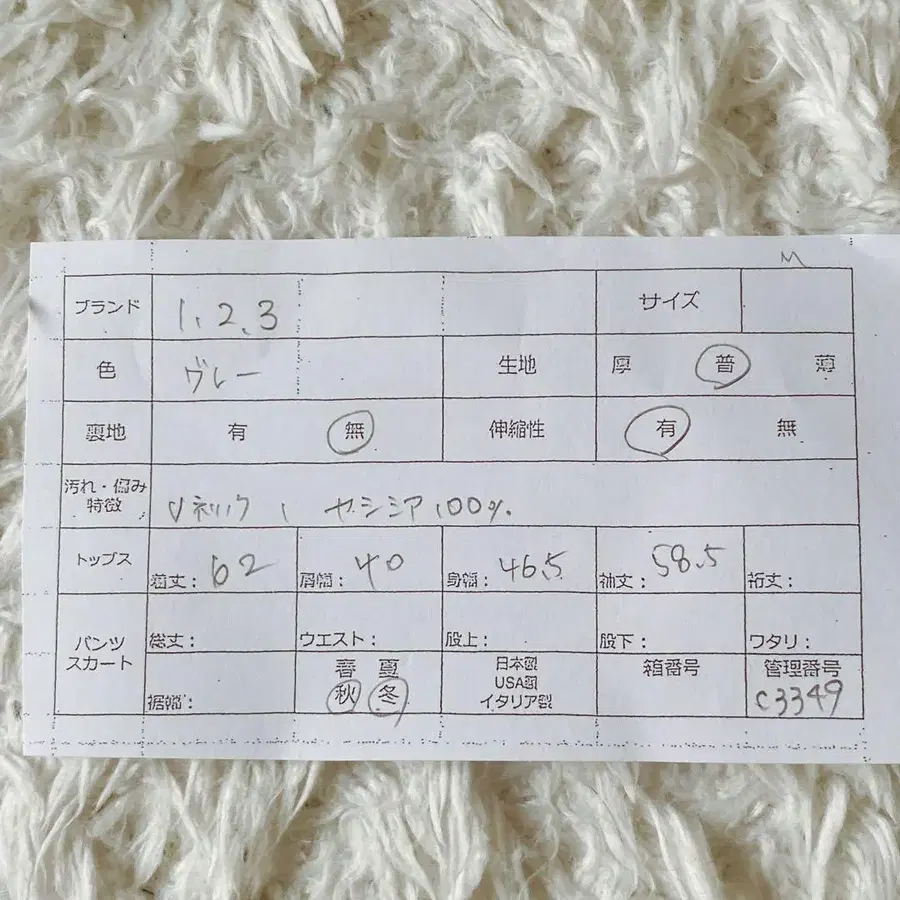 M
ブランド 1、2、3 サイズ
色 グレー 生地 厚 普 薄
裏地 有 無 伸縮性 有 無
汚れ・傷み
特徴 Vネック、カシミア100%.
トップス 着丈: 62 肩幅: 40 身幅: 46.5 袖丈: 58.5 裄丈:
パンツ
スカート 総丈: ウエスト: 股上: 股下: ワタリ:
裾幅: 春 夏
秋 冬
日本製
USA製
イタリア製
箱番号 管理番号
C3349